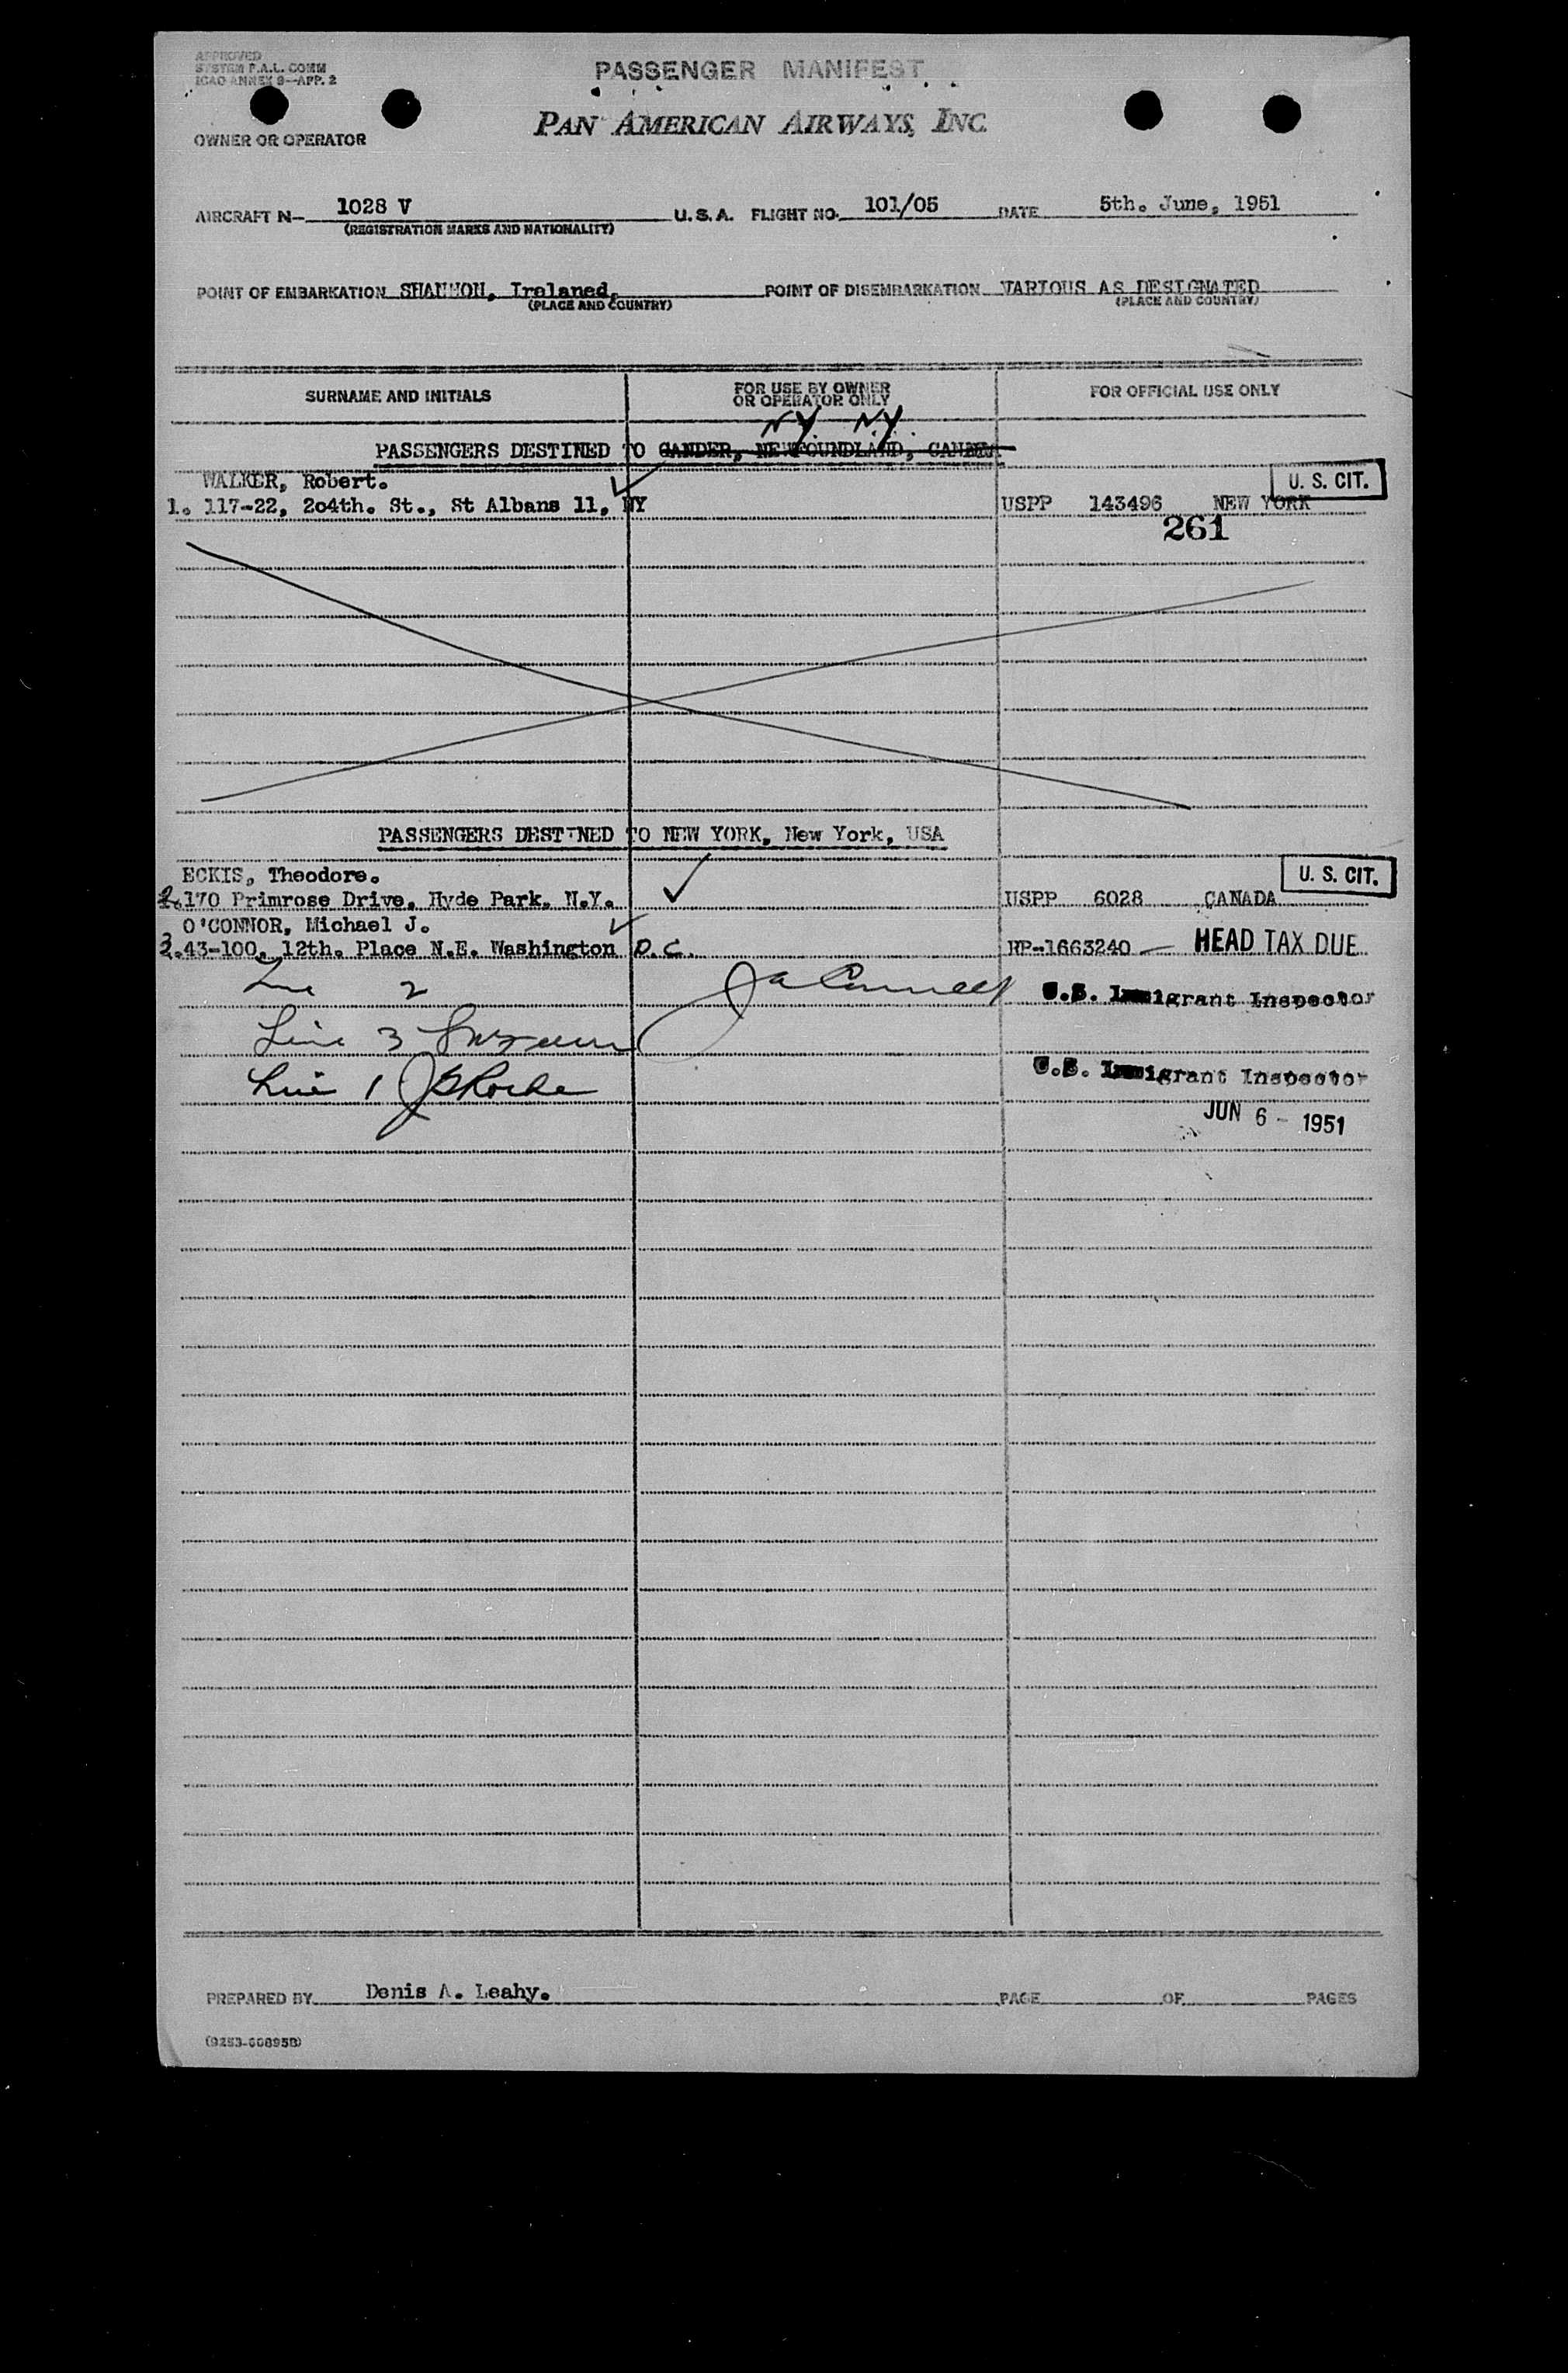 APPROVED
SYSTEM P.A.L. COMM
ICAO ANNEX 9—APP. 2
PASSENGER MANIFEST
PAN AMERICAN AIRWAYS, INC.
OWNER OR OPERATOR
AIRCRAFT N— 1028 V U. S. A. FLIGHT NO. 101/05 DATE 5th. June, 1951
(REGISTRATION MARKS AND NATIONALITY)
POINT OF EMBARKATION SHANNON, Irelaned, POINT OF DISEMBARKATION VARIOUS AS DESIGNATED
(PLACE AND COUNTRY) (PLACE AND COUNTRY)
SURNAME AND INITIALS FOR USE BY OWNER OR OPERATOR ONLY FOR OFFICIAL USE ONLY
NY NY
PASSENGERS DESTINED TO GANDER, NEWFOUNDLAND, CANADA
WALKER, Robert. U. S. CIT.
1. 117-22, 2o4th. St., St Albans 11, NY USPP 143496 NEW YORK
261
PASSENGERS DESTINED TO NEW YORK, New York, USA
ECKIS, Theodore. U. S. CIT.
2. 170 Primrose Drive. Hyde Park. N.Y. USPP 6028 CANADA
O'CONNOR, Michael J.
3. 43-100, 12th. Place N.E. Washington D.C. RP-1663240 — HEAD TAX DUE
Line 2 U.S. Immigrant Inspector
Line 3
U.S. Immigrant Inspector
Line 1 JPRoche
JUN 6 - 1951
PREPARED BY Denis A. Leahy. PAGE OF PAGES
(9253-60895B)